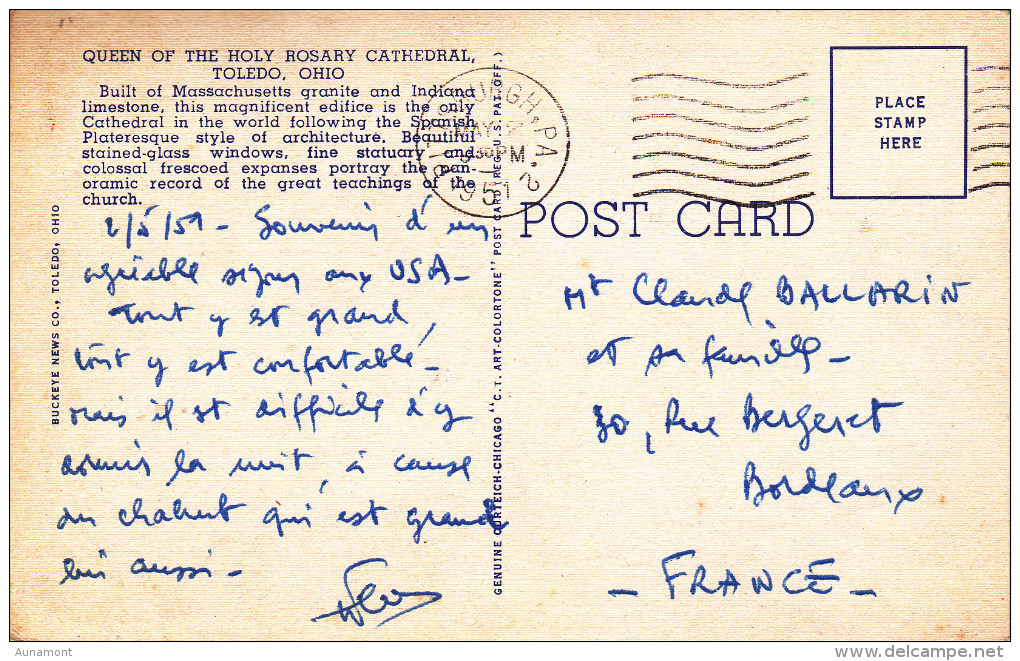 QUEEN OF THE HOLY ROSARY CATHEDRAL,
TOLEDO, OHIO
Built of Massachusetts granite and Indiana
limestone, this magnificent edifice is the only
Cathedral in the world following the Spanish
Plateresque style of architecture. Beautiful
stained-glass windows, fine statuary and
colossal frescoed expanses portray the pan-
oramic record of the great teachings of the
church.
2/5/51 - Souvenir d'un
agréable séjour aux USA -
Tout y est grand,
tout y est confortable -
mais il est difficile d'y
dormir la nuit, à cause
du chahut qui est grand
lui aussi -
BUCKEYE NEWS CO., TOLEDO, OHIO
GENUINE CURTEICH-CHICAGO "C.T. ART-COLORTONE" POST CARD (REG. U.S. PAT. OFF.)
PITTSBURGH, PA. 2
MAY
PM
1951
PLACE
STAMP
HERE
POST CARD
Mr Claude BALLARIN
et sa famille -
30, Rue Bergeret
Bordeaux
- FRANCE -
Aunamont
delcampe.net